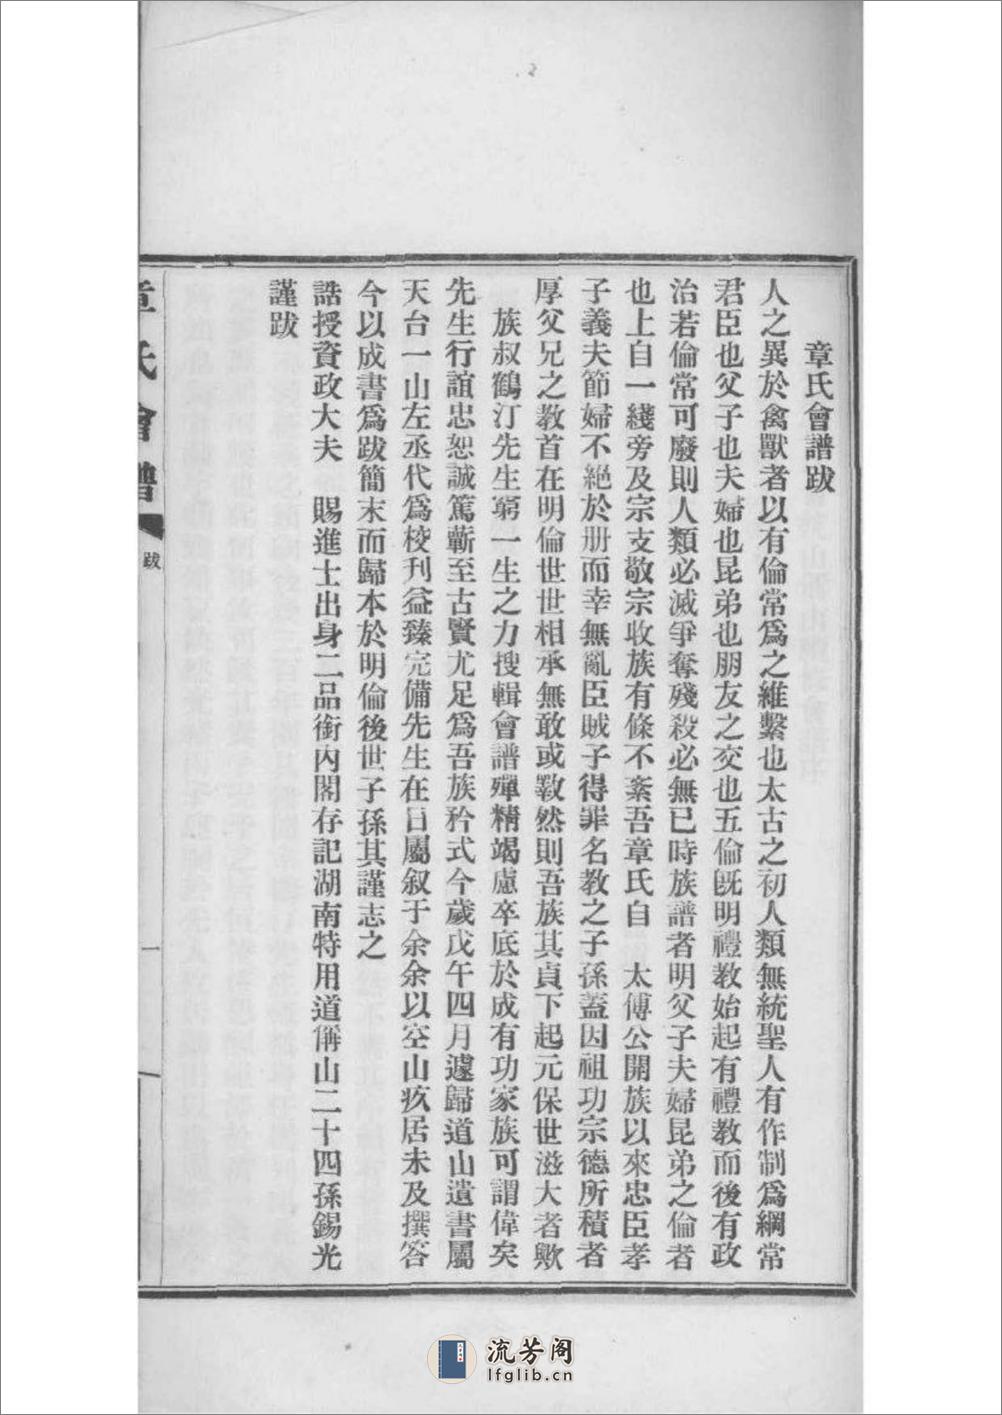 章氏會譜跋
人之異於禽獸者以有倫常爲之維繫也太古之初人類無統聖人有作制爲綱常
君臣也父子也夫婦也昆弟也朋友之交也五倫既明禮教始起有禮教而後有政
治若倫常可廢則人類必滅爭奪殘殺必無已時族譜者明父子夫婦昆弟之倫者
也上自一綫旁及宗支敬宗收族有條不紊吾章氏自 太傅公開族以來忠臣孝
子義夫節婦不絕於册而幸無亂臣賊子得罪名教之子孫蓋因祖功宗德所積者
厚父兄之教首在明倫世世相承無敢或斁然則吾族其貞下起元保世滋大者歟
族叔鶴汀先生窮一生之力搜輯會譜殫精竭慮卒底於成有功家族可謂偉矣
先生行誼忠恕誠篤蘄至古賢尤足爲吾族矜式今歲戊午四月遽歸道山遺書屬
天台一山左丞代爲校刊益臻完備先生在日屬叙于余余以空山疚居未及撰答
今以成書爲跋簡末而歸本於明倫後世子孫其謹志之
誥授資政大夫 賜進士出身二品銜內閣存記湖南特用道偁山二十四孫錫光
謹跋
章氏會譜
跋
一
流芳阁
lfglib.cn